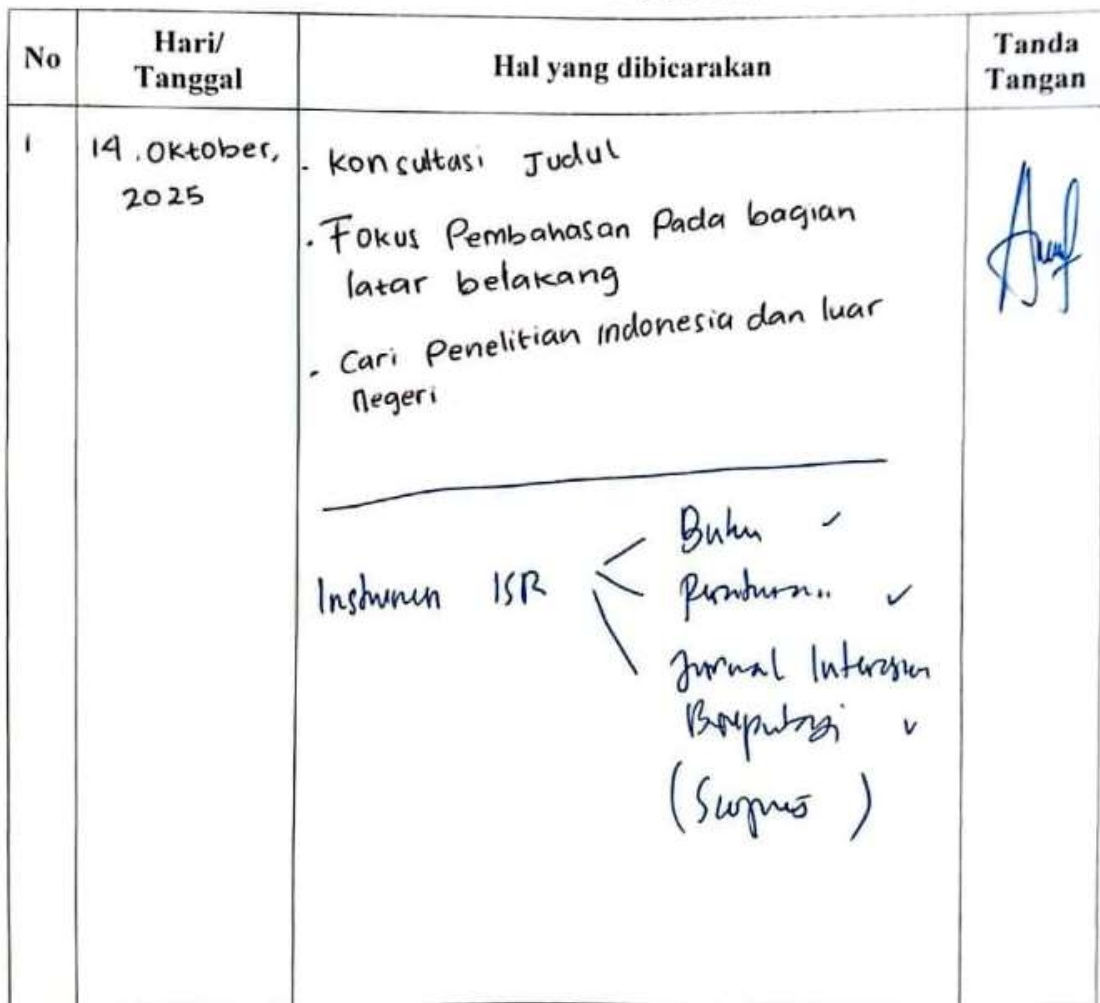 No
Hari/
Tanggal
Hal yang dibicarakan
Tanda
Tangan
1
14.Oktober,
2025
- konsultasi Judul
- Fokus Pembahasan Pada bagian
latar belakang
- Cari Penelitian indonesia dan luar
negeri
Instrumen ISR
Buku ✓
Peraturan.. ✓
Jurnal
✓
(Scopus)